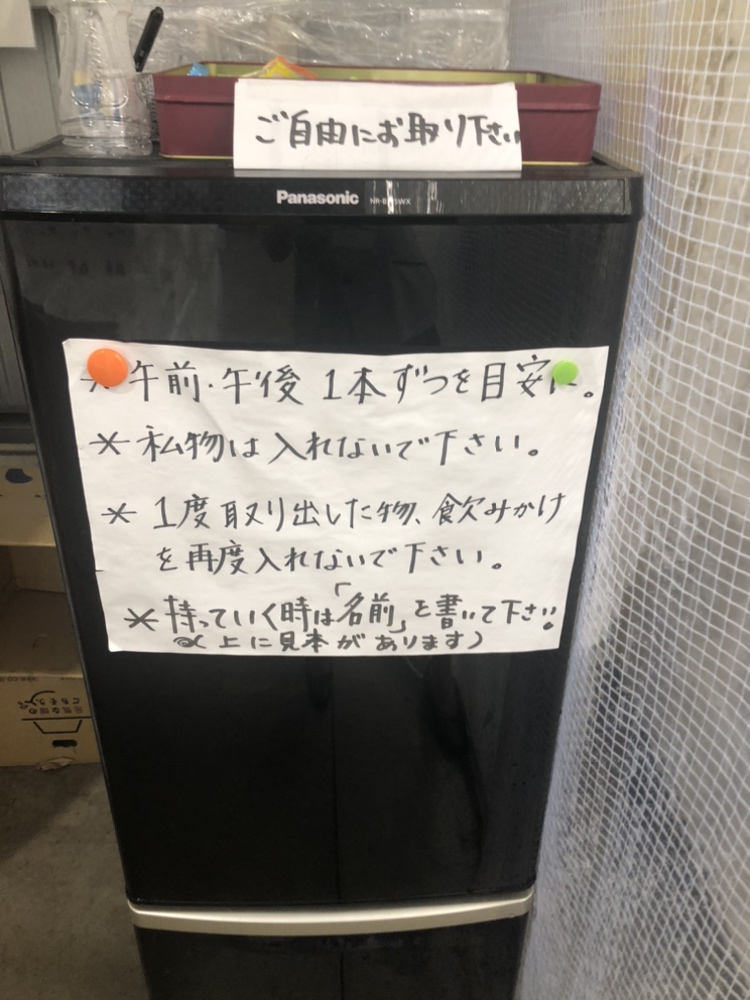 ご自由にお取り下さい
Panasonic
※午前・午後 1本ずつを目安に。
※私物は入れないで下さい。
※1度取り出した物、飲みかけ
を再度入れないで下さい。
※持っていく時は「名前」を書いて下さい!
(上に見本があります)